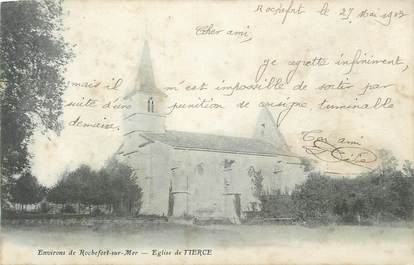 Rochefort le 27 Mai 1903
Cher ami,
je regrette infiniment,
mais il m'est impossible de sortir par
suite d'une punition de consigne, terminable
demain.
Ton ami
Environs de Rochefort-sur-Mer — Eglise de TIERCE